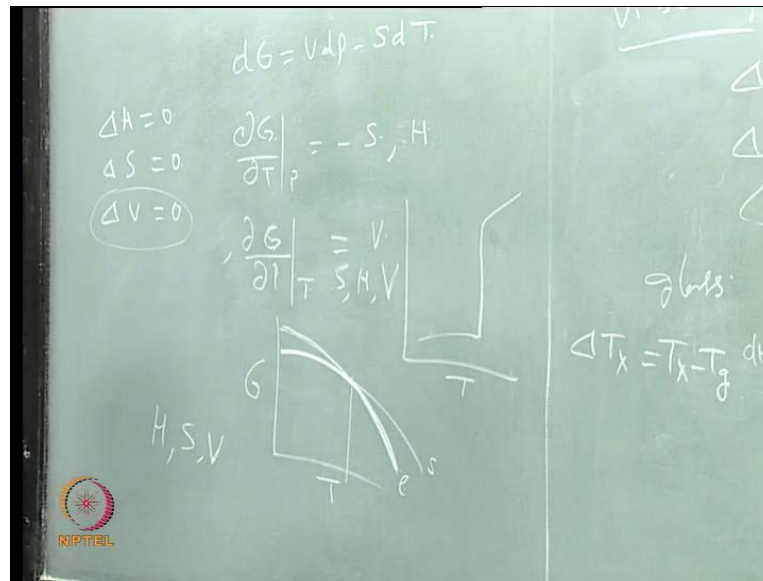 dG = Vdp - SdT.
ΔH = 0
ΔS = 0
ΔV = 0
∂G/∂T|P = - S, H
, ∂G/∂P|T = V.
S, H, V
T
G
T
l
s
H, S, V
Δ
Δ
glass.
ΔTx = Tx - Tg
NPTEL